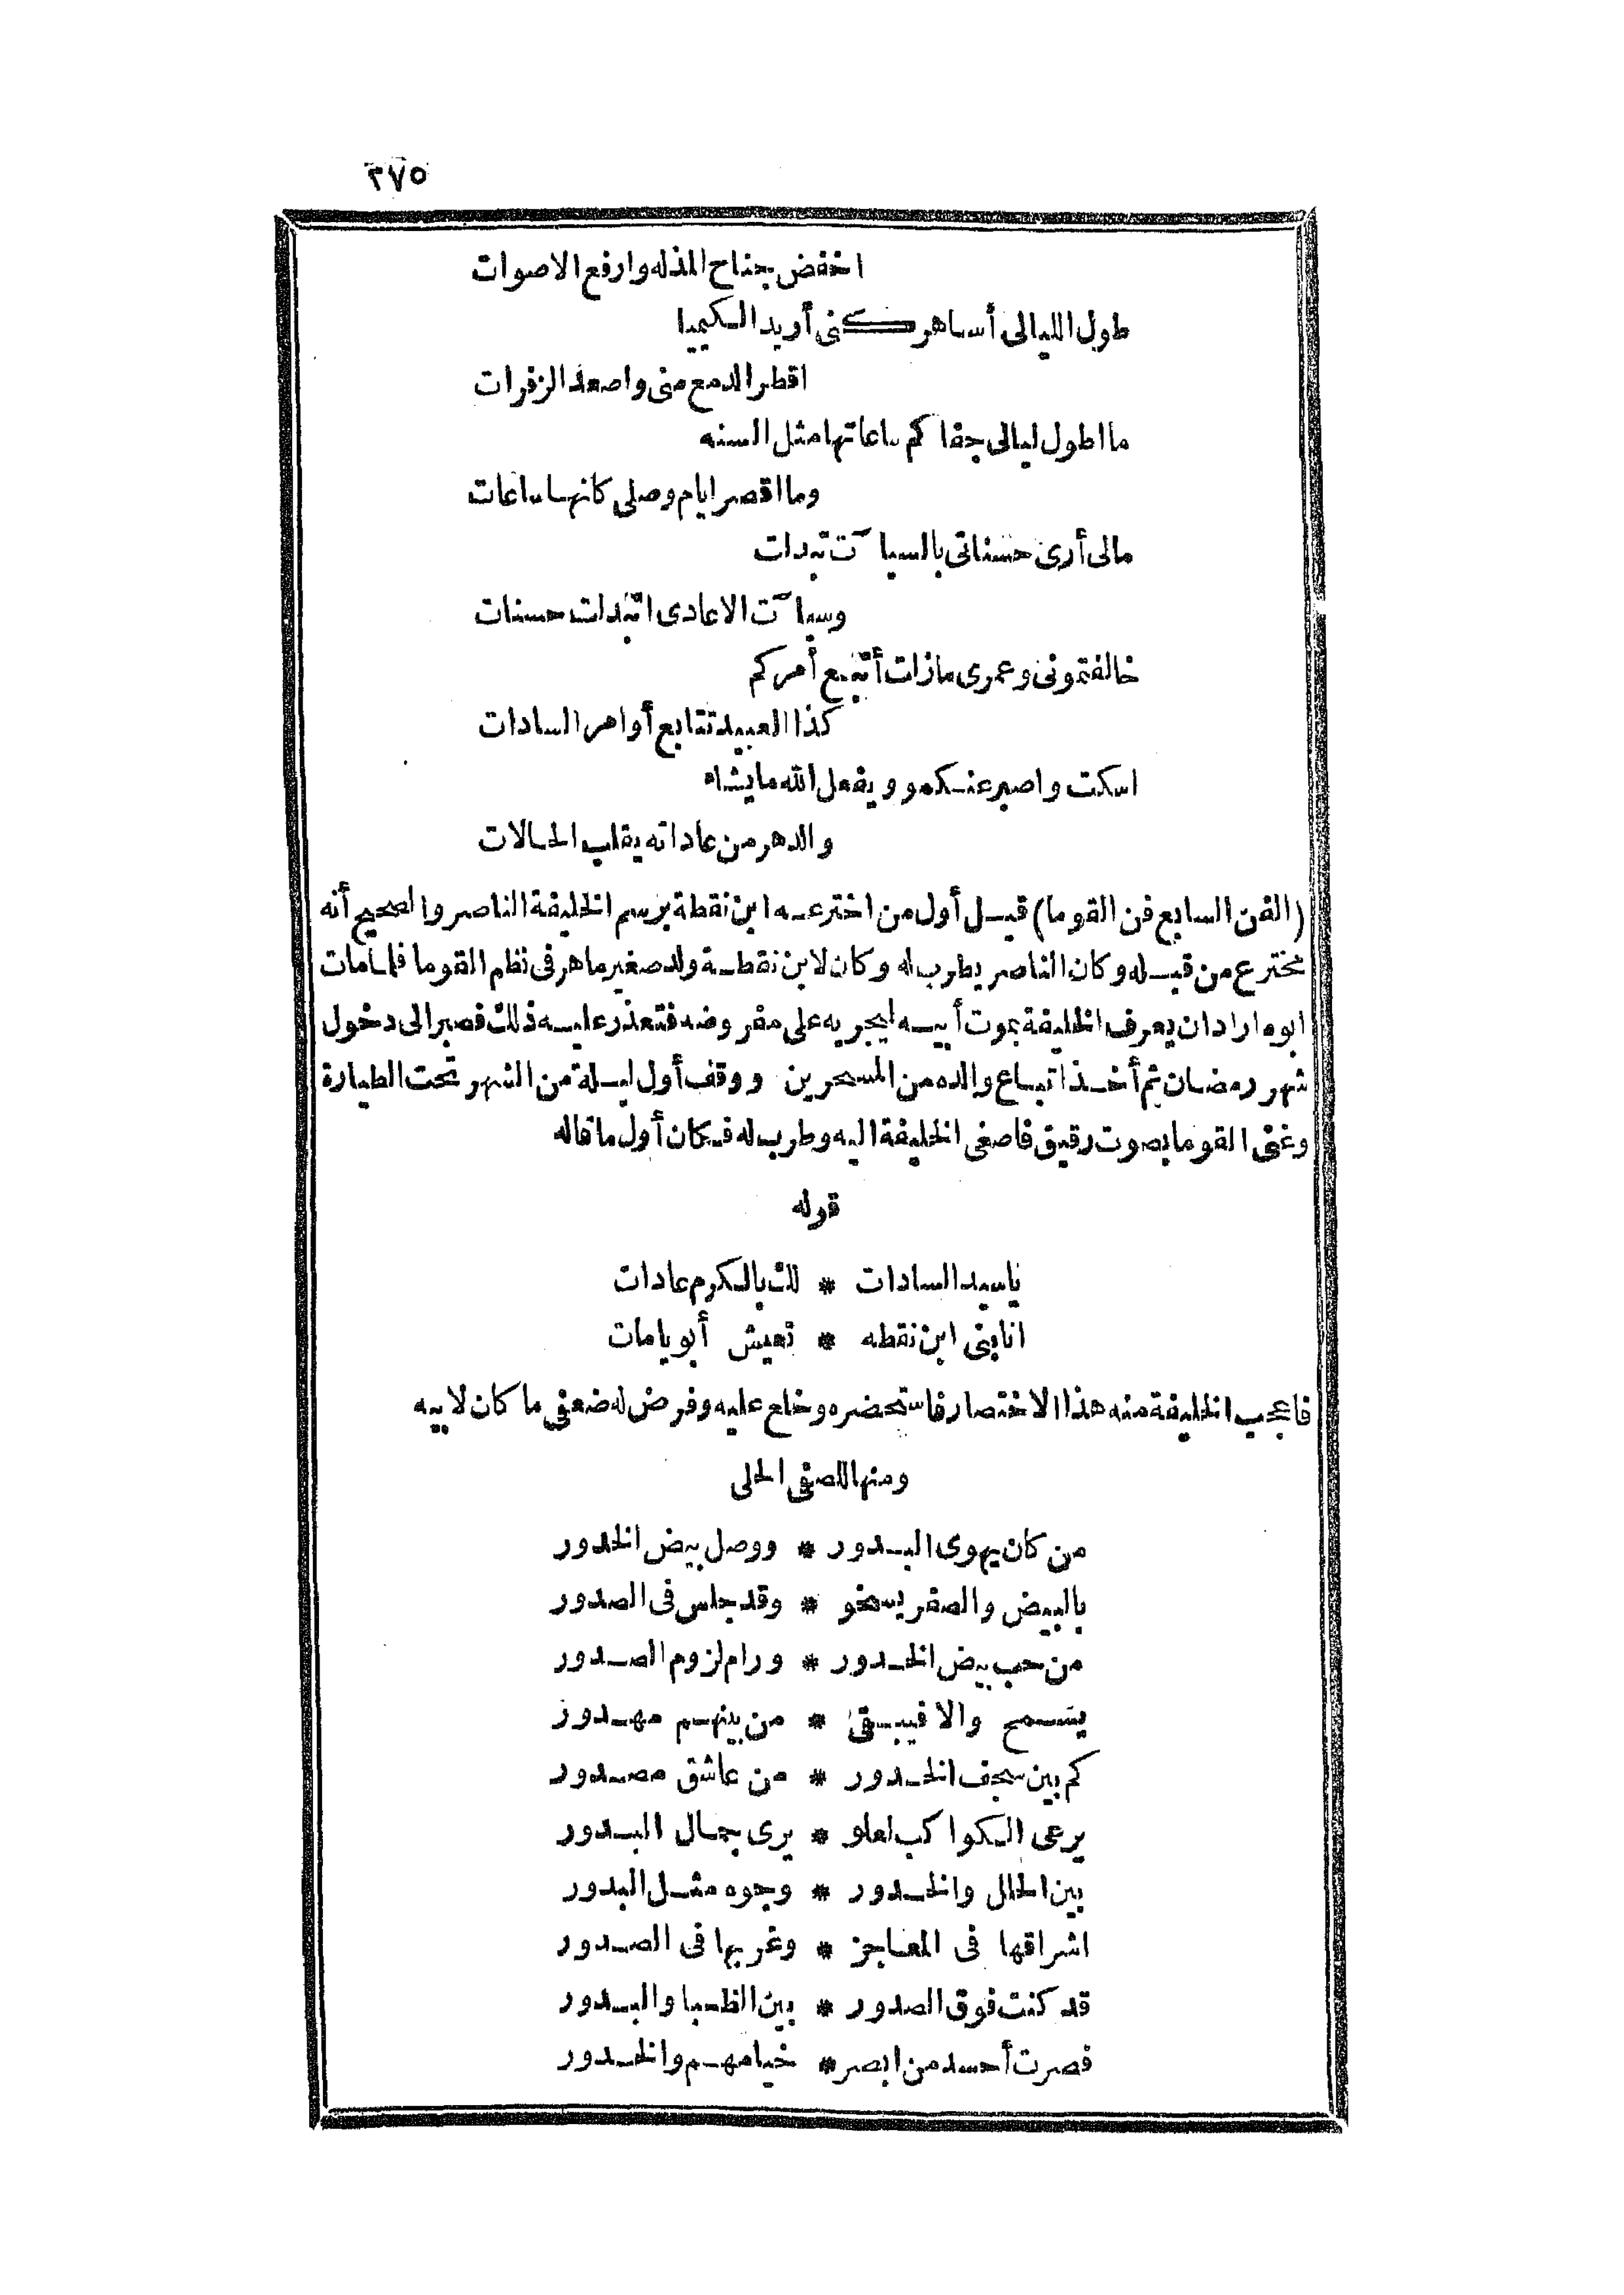 ٢٧٥
اخفض جناح المذله وارفع الاصوات
طول الليالى أساهر كنى أريد الكيميا
اقطر الدمع منى واصعد الزفرات
ما اطول ليالى جفاكم ساعاتها مثل السنه
وما اقصر ايام وصلى كانها ساعات
مالى أرى حسناتى بالسيآت تبدلت
وسيآت الاعادى اتبدلت حسنات
خالفتمونى وعمرى مازلت أتبع أمركم
كذا العبيد تتابع أوامر السادات
اسكت واصبر عنكمو ويفعل الله مايشاء
والدهر من عاداته يقلب الحالات
(الفن السابع فن القوما) قيل أول من اخترعه ابن نقطة برسم الخليفة الناصر والصحيح أنه
مخترع من قبله وكان الناصر يطرب له وكان لابن نقطة ولد صغير ماهر فى نظم القوما فلما مات
ابوه اراد ان يعرف الخليفة بموت أبيه ليجريه على مفروضه فتعذر عليه ذلك فصبر الى دخول
شهر رمضان ثم أخذ اتباع والده من المسحرين ووقف أول ليلة من الشهر تحت الطيارة
وغنى القوما بصوت رقيق فاصغى الخليفة اليه وطرب له فكان أول ما قاله
قوله
ياسيد السادات * لك بالكرم عادات
انا بنى ابن نقطه * تعيش أبويا مات
فاعجب الخليفة منه هذا الاختصار فاستحضره وخلع عليه وفرض له ضعفى ما كان لابيه
ومنها للصفى الحلى
من كان يهوى البدور * ووصل بيض الخدور
بالبيض والصفر يسخو * وقد جلس فى الصدور
من حب بيض الخدور * ورام لزوم الصدور
يسمح والا فيبقى * من بينهم مهدور
كم بين سجف الخدور * من عاشق مصدور
يرعى الكواكب لعلو * يرى جمال البدور
بين الحلل والخدور * وجوه مثل البدور
اشراقها فى المعاجز * وغربها فى الصدور
قد كنت فوق الصدور * بين الظبا والبدور
فصرت أحسد من ابصر * خيامهم والخدور